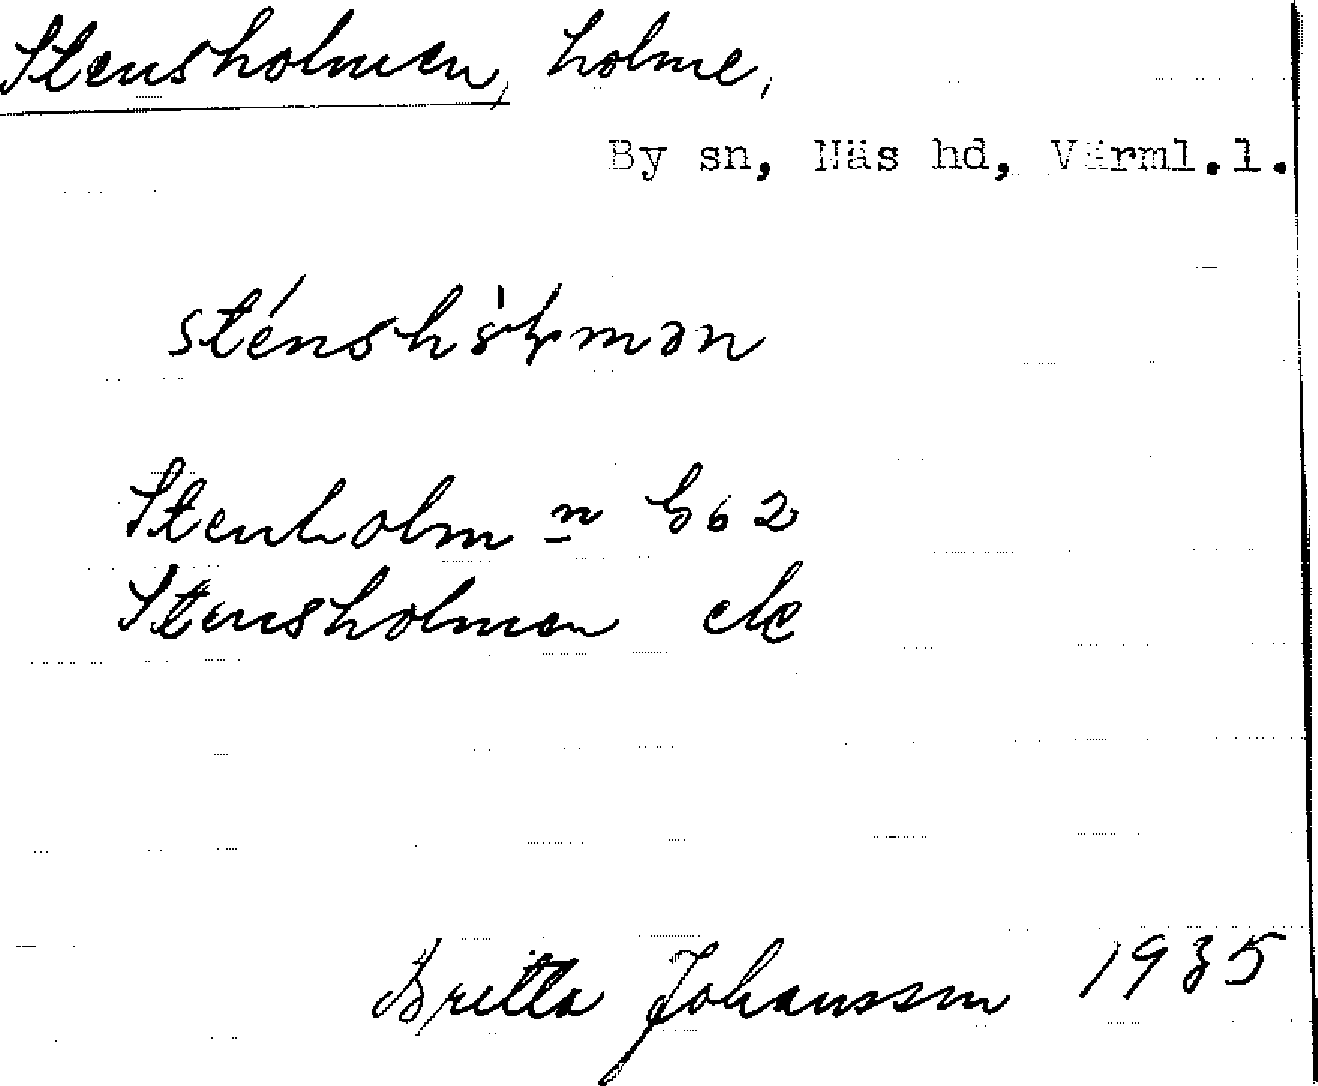 Stensholmen, holme,
By sn, Näs hd, Värml.l.
Stenholm n G62
Stensholmen elc
Britta Johansson 1935